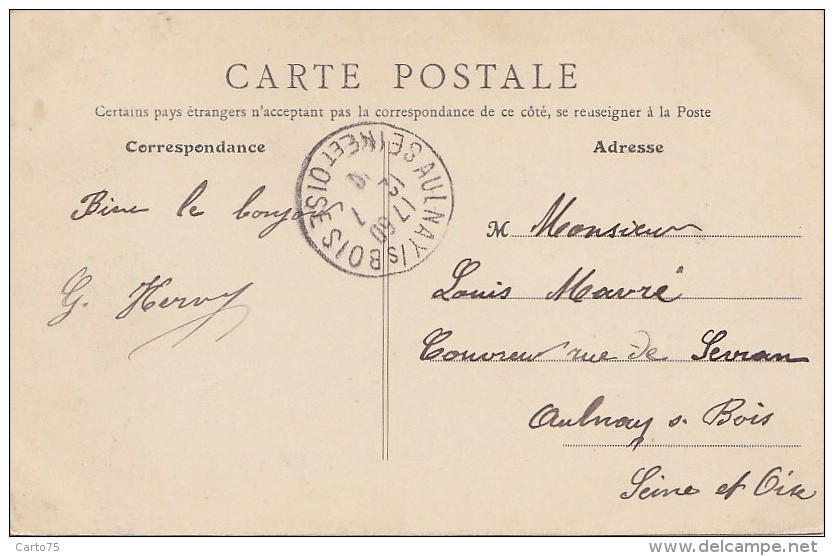 CARTE POSTALE
Certains pays étrangers n'acceptant pas la correspondance de ce côté, se renseigner à la Poste
Correspondance
Adresse
AULNAY/S BOIS SEINE ET OISE
Bien le bonjour
G. Hervy
M Monsieur
Louis Mavré
Couvreur rue de Sevran
Aulnay s. Bois
Seine et Oise
Carto75
delcampe.net